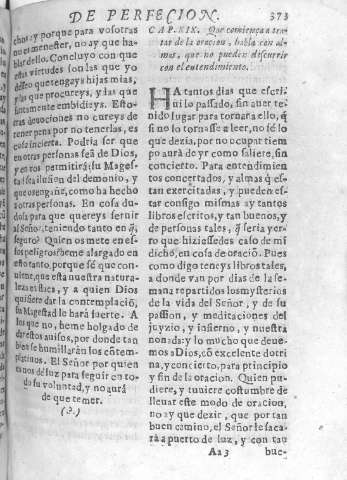 DE PERFECION.
373
chos: y porque para vosotras
no es menester, no ay que ha-
blar dello. Concluyo con que
estas virtudes son las que yo
desseo que tengays hijas mias,
y las que procureys, y las que
santamente embidieys. Esto-
tras deuociones no cureys de
tener pena por no tenerlas, es
cosa incierta. Podria ser que
en otras personas seã de Dios,
y en vos permitirà su Mages-
tad sea ilusion del demonio, y
que os engañe, como ha hecho
a otras personas. En cosa du-
dosa para que quereys seruir
al Señor, teniendo tanto en q̃
seguro? Quien os mete en es-
sos peligros? heme alargado en
esto tanto, porque sé que con-
uiene, que esta nuestra natura-
leza es flaca, y a quien Dios
quisiere dar la contemplaciõ,
su Magestad le harà fuerte. A
los que no, heme holgado de
dar estos auisos, por donde tan
bien se humillaràn los cõtem-
platiuos. El Señor por quien
es nos dè luz para seguir en to-
do su voluntad, y no aurà
de que temer.
(?.)
CAP. XIX. Que comiença a tra-
tar de la oracion, habla con al-
mas, que no pueden discurrir
con el entendimiento.
HA tantos dias que escri-
ui lo passado, sin auer te-
nido lugar para tornar a ello, q̃
si no lo tornasse a leer, no sè lo
que dezia, por no ocupar tiem
po aurà de yr como saliere, sin
concierto. Para entendimien
tos concertados, y almas q̃ es-
tan exercitadas, y pueden es-
tar consigo mismas ay tantos
libros escritos, y tan buenos, y
de personas tales, q̃ seria yer-
ro que hiziessedes caso de mi
dicho, en cosa de oraciõ. Pues
como digo teneys libros tales,
a donde van por dias de la se-
mana repartidos los mysterios
de la vida del Señor, y de su
passion, y meditaciones del
juyzio, y infierno, y nuestra
nonada: y lo mucho que deue-
mos a Dios, cõ excelente dotri
na, y concierto, para principio
y fin de la oracion. Quien pu-
diere, y tuuiere costumbre de
lleuar este modo de oracion,
no ay que dezir, que por tan
buen camino, el Señor le saca-
rà a puerto de luz, y con tan
Aa 3
bue-